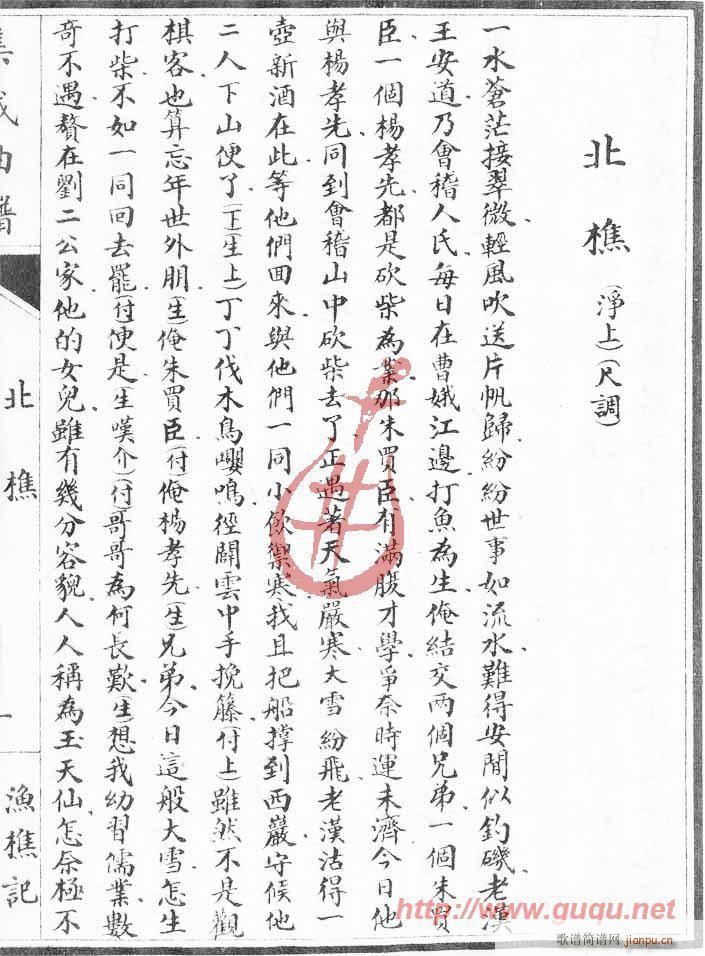 北樵（淨上）（尺調）
一水蒼茫接翠微輕風吹送片帆歸紛紛世事如流水難得安閒似釣磯老漢
王安道乃會稽人氏每日在曹娥江邊打魚為生俺結交兩個兄弟一個朱買
臣一個楊孝先都是砍柴為業那朱買臣有滿腹才學爭奈時運未濟今日他
與楊孝先同到會稽山中砍柴去了正遇著天氣嚴寒大雪紛飛老漢沽得一
壺新酒在此等他們回來與他們一同小飲禦寒我且把船撑到西巖守候他
二人下山便了（下）（生上）丁丁伐木鳥嚶鳴徑闢雲中手挽籐（付上）雖然不是觀
棋客也算忘年世外朋（生）俺朱買臣（付）俺楊孝先（生）兄弟今日這般大雪怎生
打柴不如一同回去罷（付）便是（生嘆介）（付）哥哥為何長歎（生）想我幼習儒業數
奇不遇贅在劉二公家他的女兒雖有幾分容貌人人稱為玉天仙怎奈極不
集成曲譜
北樵
一
漁樵記
http://www.guqu.net
歌谱简谱网 jianpu.cn